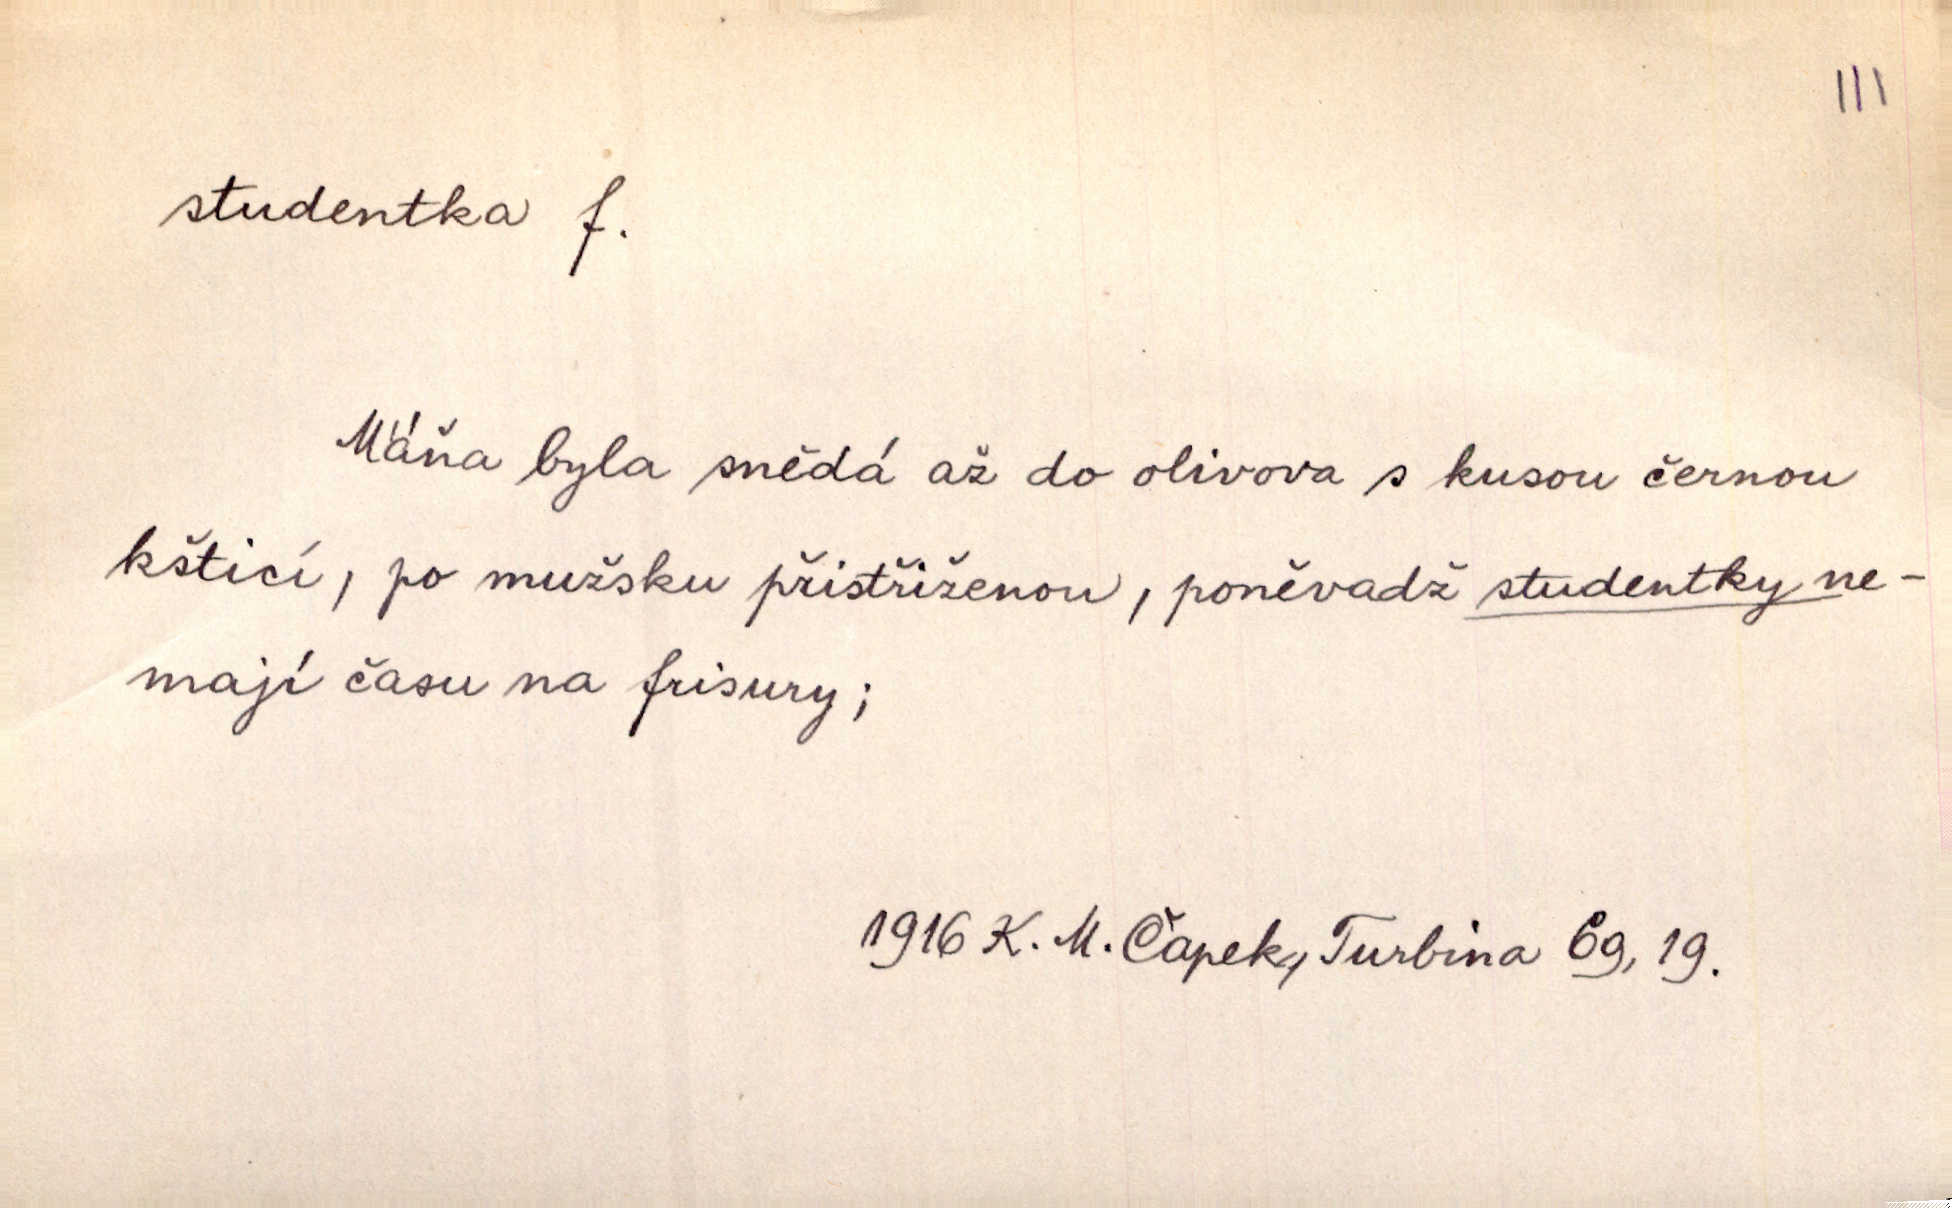 III
studentka f.
Máňa byla snědá až do olivova s kusou černou
kšticí, po mužsku přistřiženou, poněvadž studentky ne-
mají času na frisury;
1916 K. M. Čapek, Turbina 69, 19.